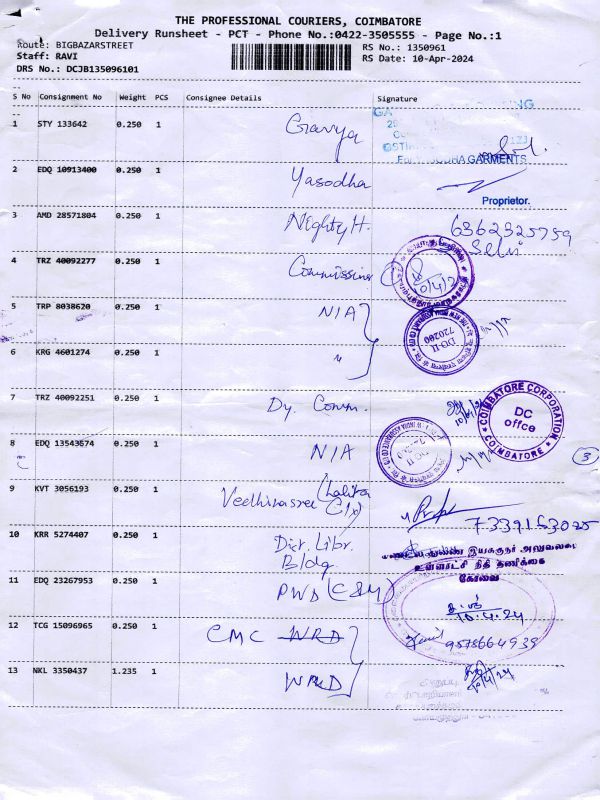 THE PROFESSIONAL COURIERS, COIMBATORE
Delivery Runsheet - PCT - Phone No.:0422-3505555 - Page No.:1
Route: BIGBAZARSTREET RS No.: 1350961
Staff: RAVI RS Date: 10-Apr-2024
DRS No.: DCJB135096101
S No Consignment No Weight PCS Consignee Details Signature
1 STY 133642 0.250 1 Gavya
GARMENTS
2 EDQ 10913400 0.250 1 Yasodha
Proprietor.
3 AMD 28571804 0.250 1 Nighty H. 6362325759
Selvi
4 TRZ 40092277 0.250 1 Commissioner 10/4/2
5 TRP 8038620 0.250 1 NIA
DO-II
720200
6 KRG 4601274 0.250 1 "
7 TRZ 40092251 0.250 1 Dy. Comm.
COIMBATORE CORPORATION
DC
offce
COIMBATORE
8 EDQ 13543574 0.250 1 NIA
DO-II
3
9 KVT 3056193 0.250 1 Veethinasree (Lalitha
7339163025
10 KRR 5274407 0.250 1 Dict. Libr.
Bldg
இயக்குநர் அலுவலக
உள்ளாட்சி நிதி தணிக்கை
கோவை
11 EDQ 23267953 0.250 1 PWD (C&M)
10.4.24
12 TCG 15096965 0.250 1 CMC WRD
9578664939
13 NKL 3350437 1.235 1 WRD
10/4/24